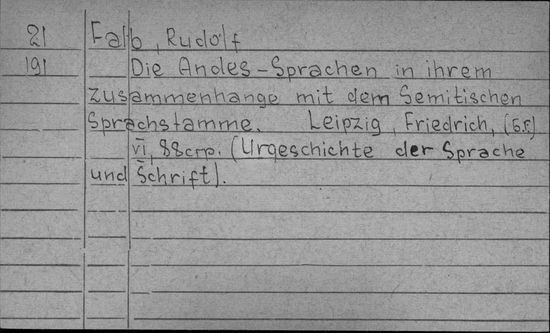 21 Falb, Rudolf
191 Die Andes-Sprachen in ihrem
Zusammenhange mit dem Semitischen
Sprachstamme. Leipzig, Friedrich, (б.г.)
VI, 88стр. (Urgeschichte der Sprache
und Schrift).